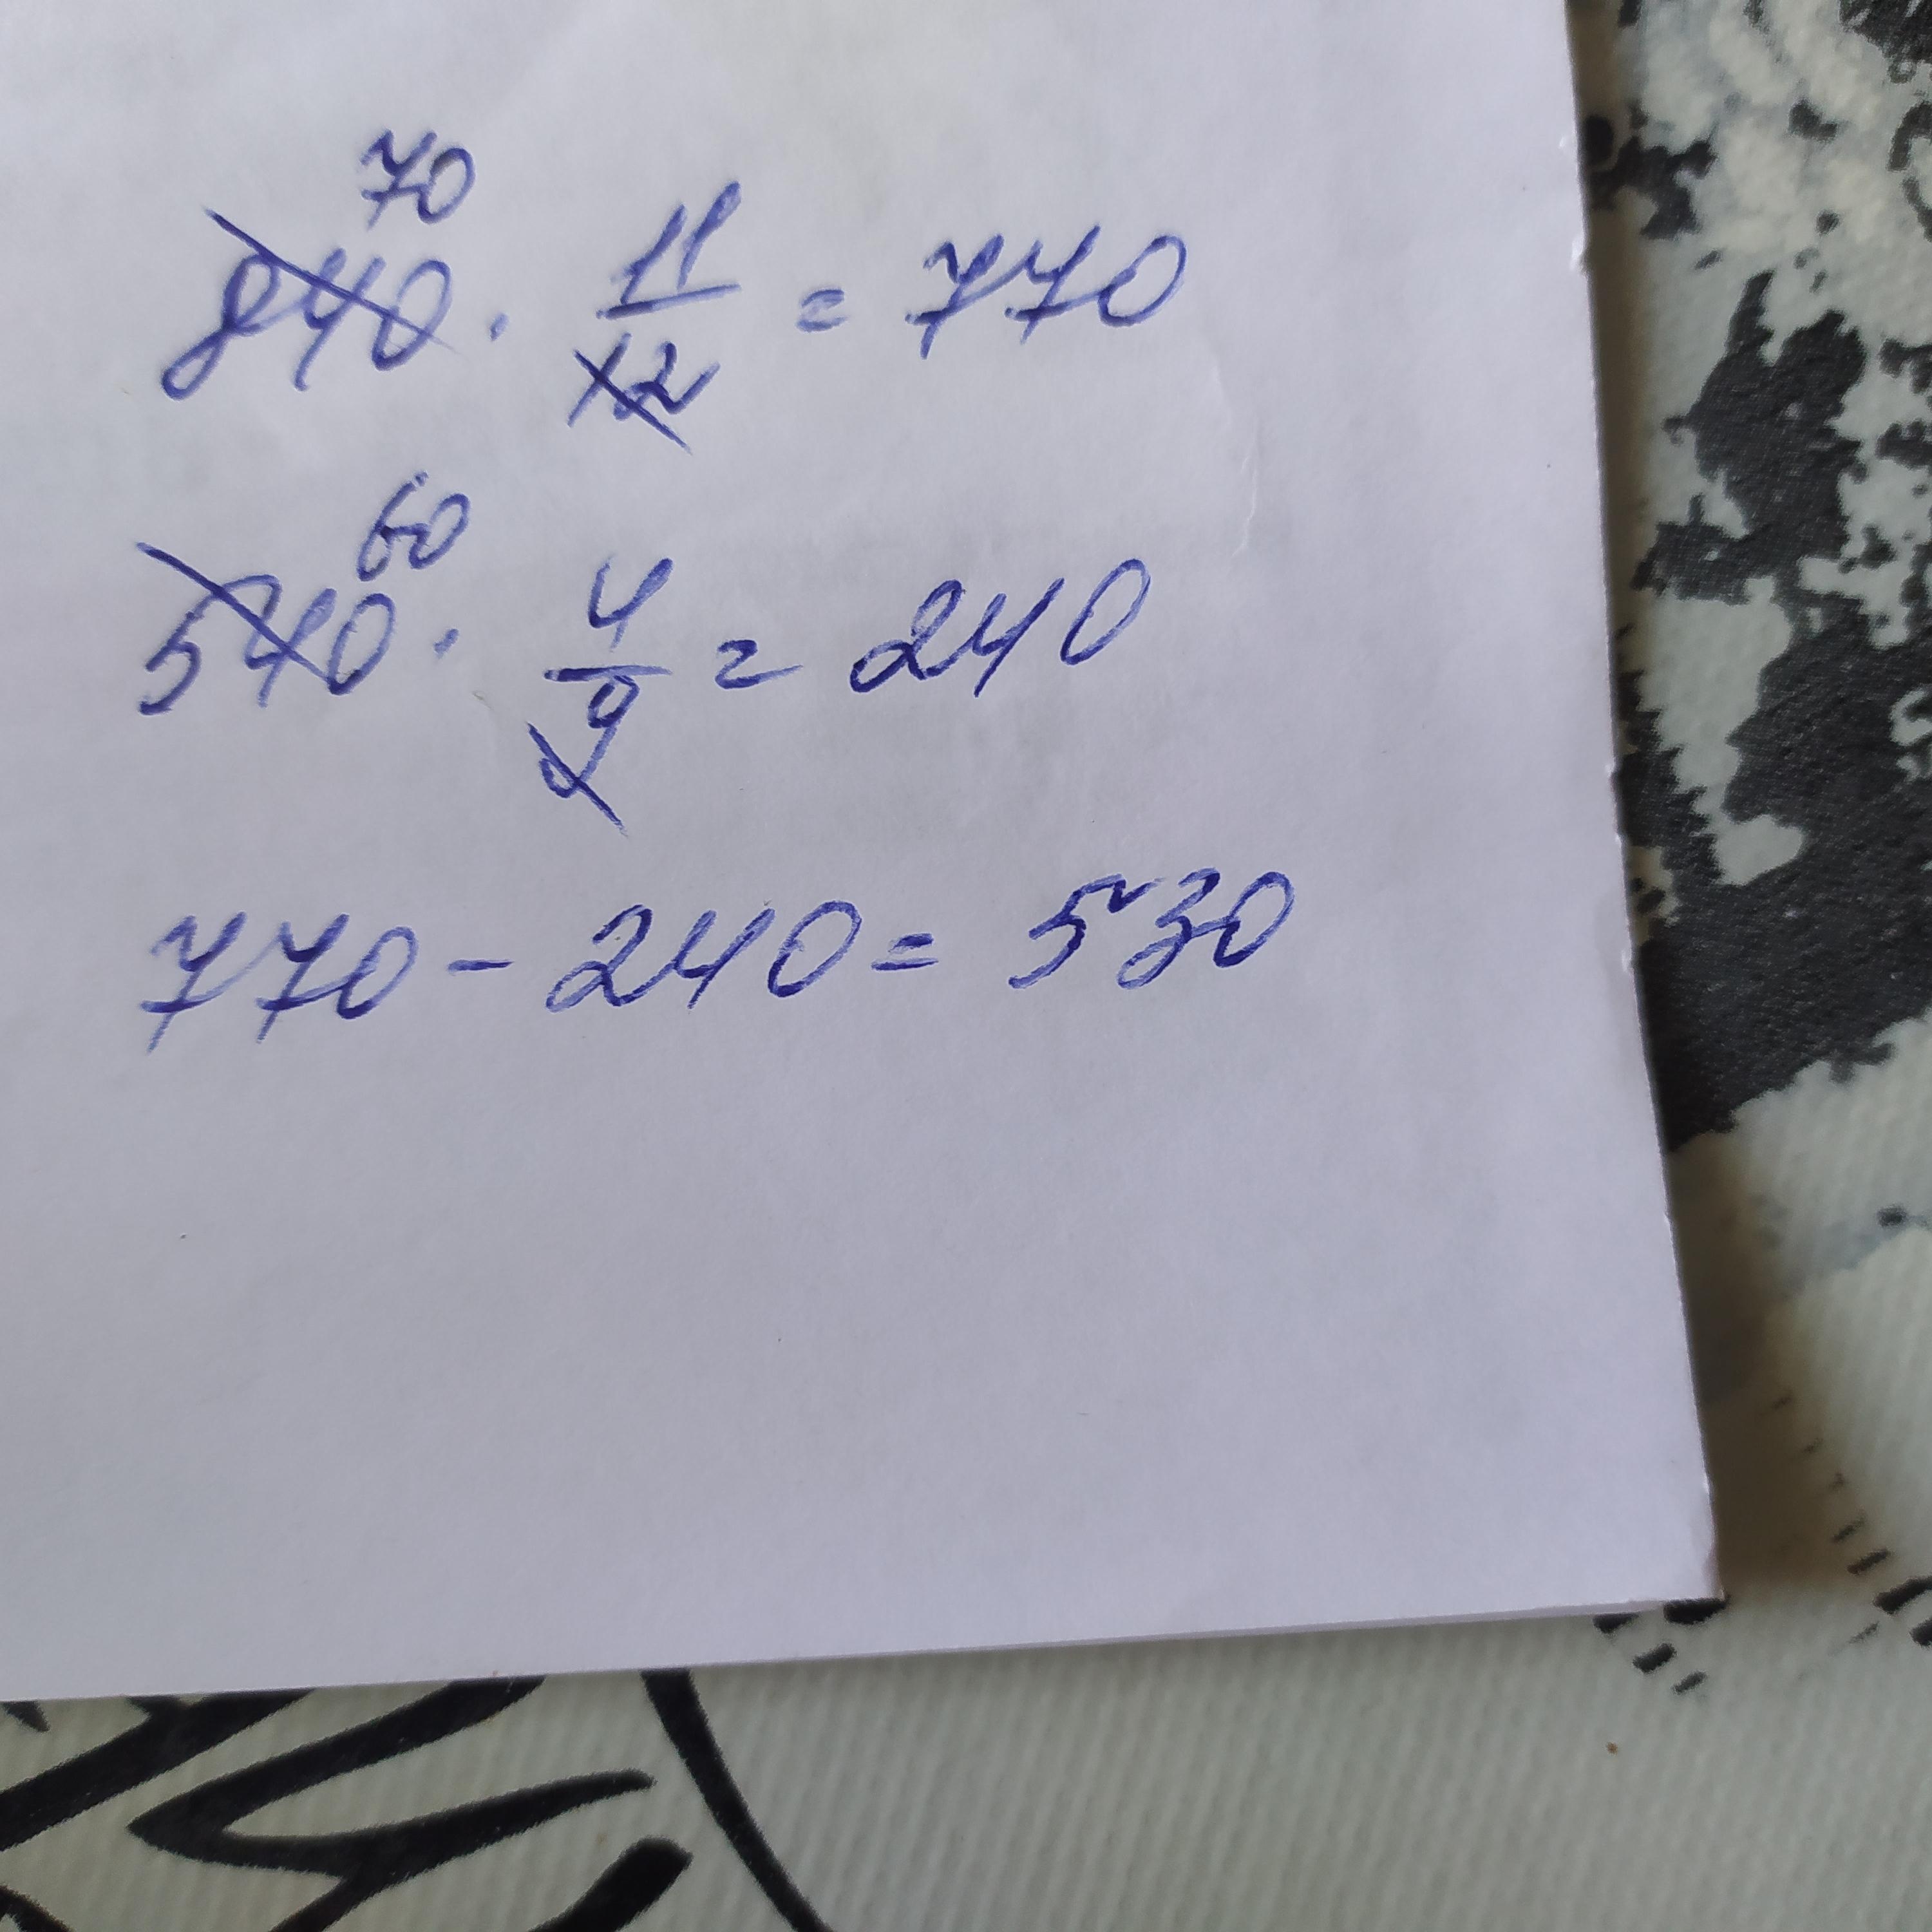 70
840 · 11/12 = 770
60
540 · 4/9 = 240
770 - 240 = 530